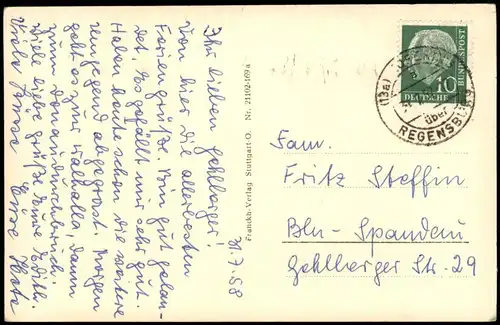 31.7.58
Ihr lieben Gehlberger!
Von hier die allerbesten
Feriengrüße. Bin gut gelan-
det. Es gefällt mir sehr gut.
Haben heute schon die weitere
Umgegend abgegrast. Morgen
geht es zur Walhalla, dann
zum Donaudurchbruch.
Viele liebe Grüße Eure Edith.
Viele Grüße Eure
Franckh-Verlag Stuttgart-O. Nr. 21102-169a
DEUTSCHE BUNDESPOST
10
(13a)
über
REGENSBURG
Fam.
Fritz Steffin
Bln-Spandau
Gehlberger Str. 29